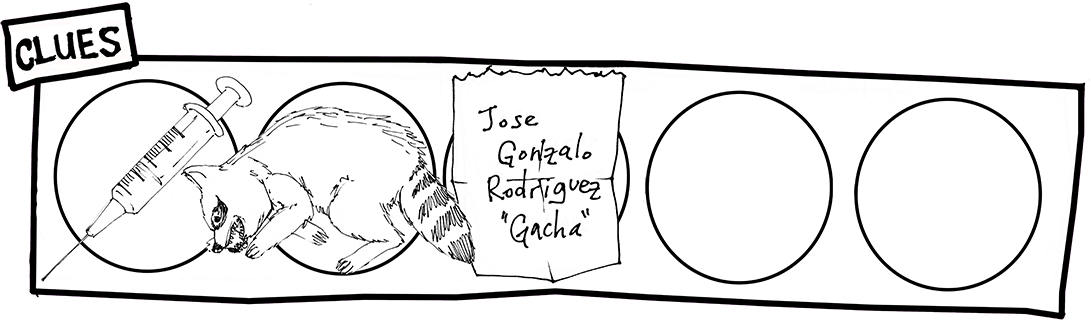 CLUES
Jose
Gonzalo
Rodriguez
"Gacha"